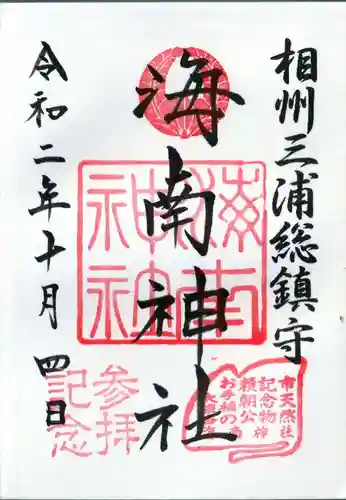 相州三浦総鎮守
海南神社
令和二年十月四日
海南神社
参拝
記念
市天然
記念物
頼朝公
お手植の